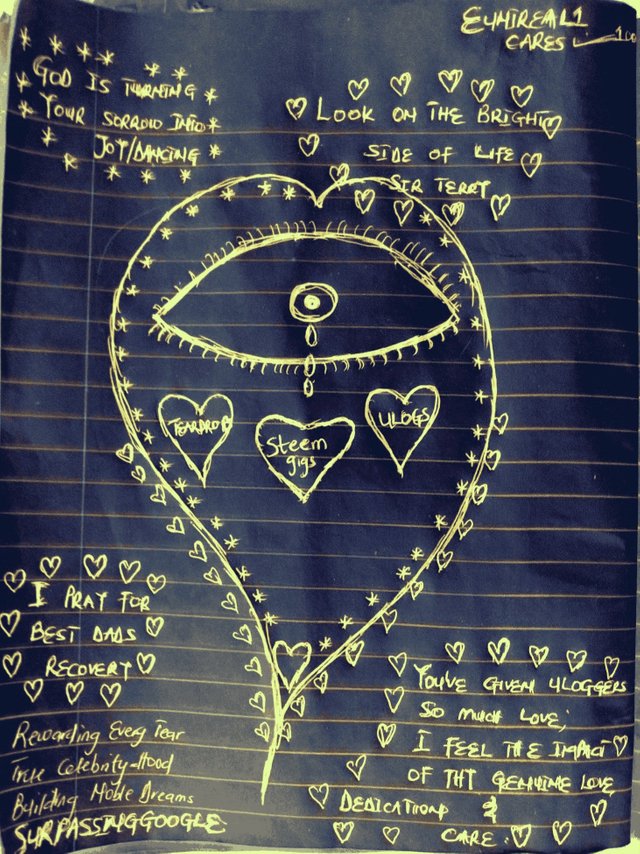 EUMIREAL1
CARES 100
GOD IS TURNING
YOUR SORROW INTO
JOY/DANCING
LOOK ON THE BRIGHT
SIDE OF LIFE
SIR TERRY
TEARDROP
Steem
gigs
ULOGS
I PRAY FOR
BEST DADS
RECOVERY
Rewarding Every Tear
True Celebrity-Hood
Building Mobile Dreams
SURPASSINGGOOGLE
YOU'VE GIVEN ULOGGERS
SO MUCH LOVE,
I FEEL THE IMPACT
OF THT GENUINE LOVE,
DEDICATION &
CARE.